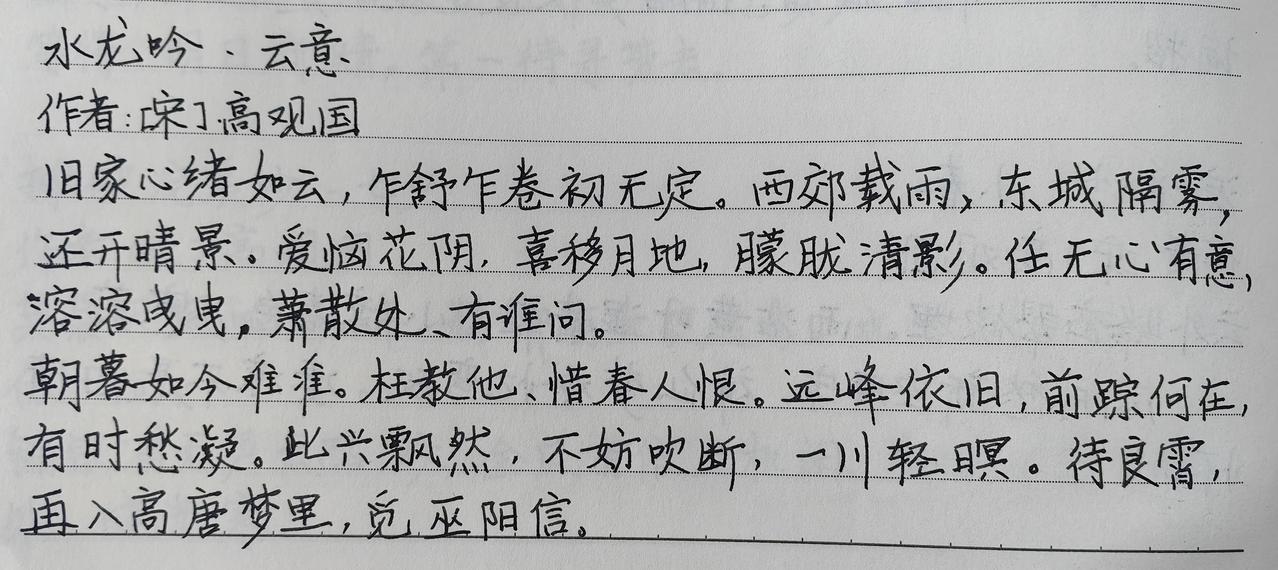 水龙吟·云意
作者:[宋]高观国
旧家心绪如云，乍舒乍卷初无定。西郊载雨、东城隔雾，
还开晴景。爱恼花阴，喜移月地，朦胧清影。任无心有意，
溶溶曳曳，萧散处、有谁问。
朝暮如今难准。枉教他、惜春人恨。远峰依旧，前踪何在，
有时愁凝。此兴飘然，不妨吹断，一川轻暝。待良霄，
再入高唐梦里，觅巫阳信。